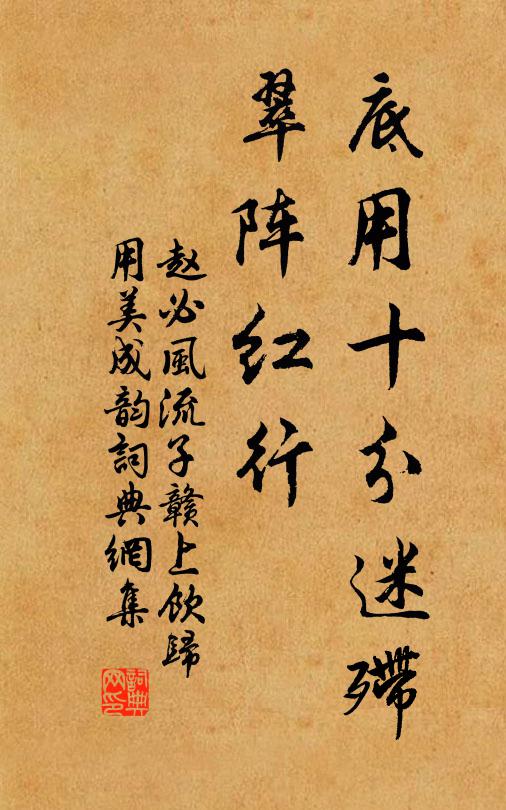 底用十分迷殢
翠阵红行
赵必風流子贛上飲歸
用美成韵詞典網集
詞典网印